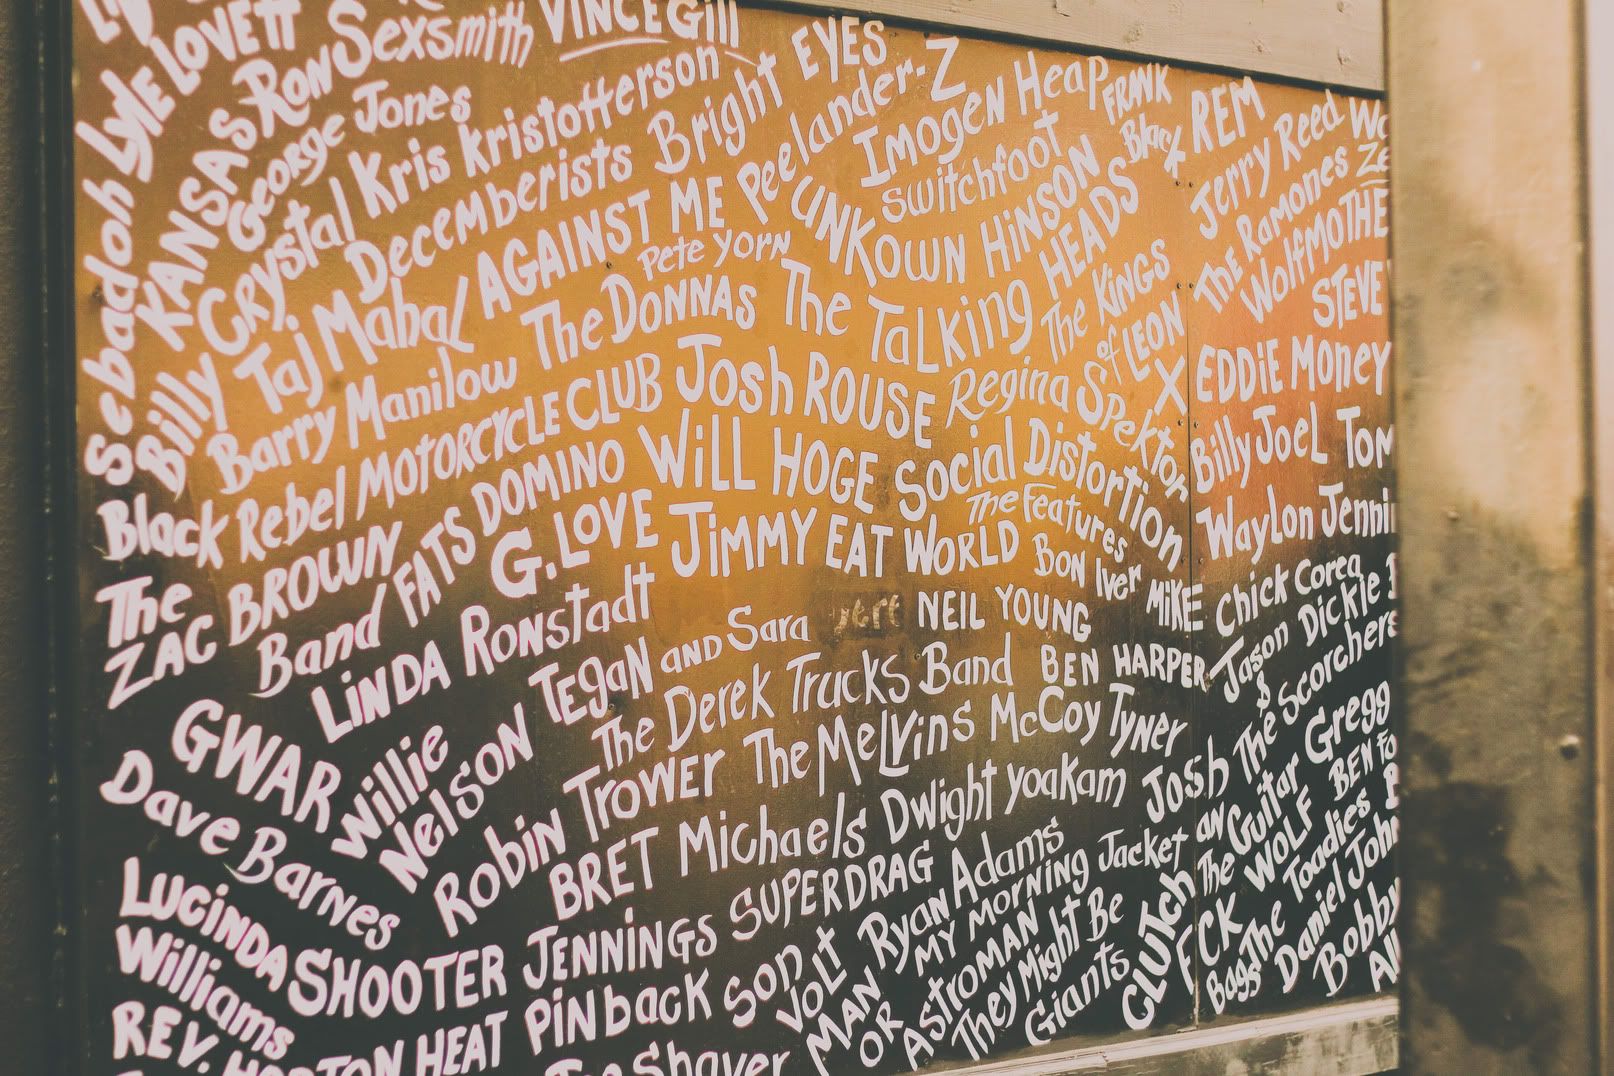 Lyle LOVETT
Ron Sexsmith
VINCE Gill
Sebadoh
KANSAS
George Jones
Kris Kristofferson
Bright EYES
Peelander-Z
Imogen Heap
FRANK Black
REM
Billy Crystal
Decemberists
AGAINST ME
Switchfoot
Jerry Reed
Taj Mahal
Pete Yorn
UNKOWN HINSON
The Ramones
WolfMOTHE
Barry Manilow
The DONNAS
The TaLking HEADS
The KINGS of LEON
STEVE
Black Rebel MOTORCYCLE CLUB
Josh ROUSE
Regina Spektor
X
EDDiE MoneY
The ZAC BROWN Band
FATS DOMINO
WiLL HOGE
Social Distortion
Billy JoeL
TOM
G. LOVE
JiMMY EAT WORLD
The Features
Bon Iver
MiKE
Waylon Jenni
LiNDA RONstadt
Tegan AND Sara
NEIL YOUNG
Chick Corea
GWAR
Willie Nelson
The Derek Trucks Band
BEN HARPER
Jason Dickie & The Scorchers
Dave Barnes
Robin Trower
The MeLvins
McCoy Tyner
BRET Michaels
Dwight Yoakam
Josh
Guitar WOLF
Gregg
BEN Fo
LUCiNDA Williams
SHOOTER JENNiNGS
SUPERDRAG
Ryan Adams
MY MORNING Jacket
The Toadies
Daniel John
REV. HORTON HEAT
PiNback
Son VoLt
MAN OR ASTROMAN
They Might Be Giants
CLUTCH
Bobby
Shaver